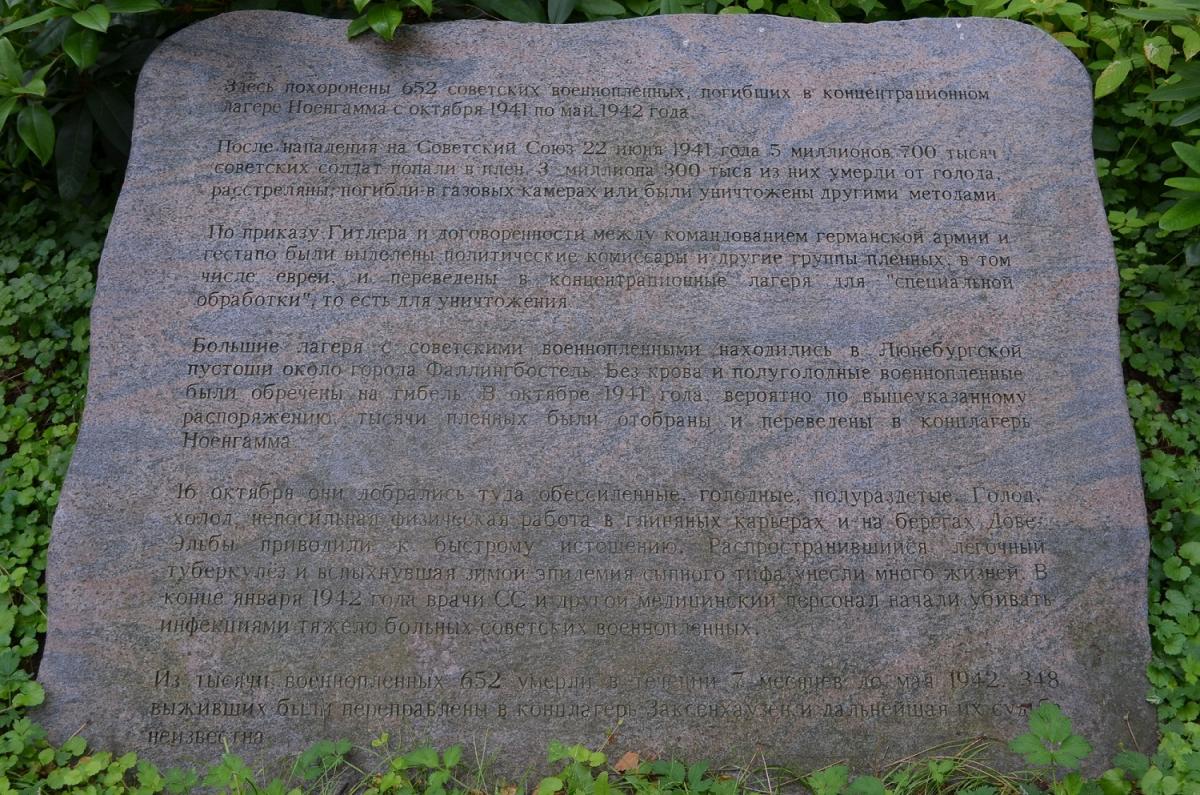 Здесь похоронены 652 советских военнопленных, погибших в концентрационном
лагере Ноенгамма с октября 1941 по май 1942 года.
После нападения на Советский Союз 22 июня 1941 года 5 миллионов 700 тысяч
советских солдат попали в плен. 3 миллиона 300 тыся из них умерли от голода,
расстреляны, погибли в газовых камерах или были уничтожены другими методами.
По приказу Гитлера и договоренности между командованием германской армии и
гестапо были выделены политические комиссары и другие группы пленных, в том
числе евреи, и переведены в концентрационные лагеря для "специальной
обработки", то есть для уничтожения.
Большие лагеря с советскими военнопленными находились в Люнебургской
пустоши около города Фаллингбостель. Без крова и полуголодные военнопленные
были обречены на гибель. В октябре 1941 года, вероятно по вышеуказанному
распоряжению, тысячи пленных были отобраны и переведены в конплагерь
Ноенгамма.
16 октября они добрались туда обессиленные, голодные, полураздетые. Голод,
холод, непосильная физическая работа в глиняных карьерах и на берегах Дове-
Эльбы приводили к быстрому истощению. Распространившийся легочный
туберкулёз и вспыхнувшая зимой эпидемия сыпного тифа унесли много жизней. В
конце января 1942 года врачи СС и другой медицинский персонал начали убивать
инфекциями тяжело больных советских военнопленных.
Из тысячи военнопленных 652 умерли в течении 7 месяцев до мая 1942. 348
выживших были переправлены в конплагерь Заксенхаузен и дальнейшая их
неизвестна.